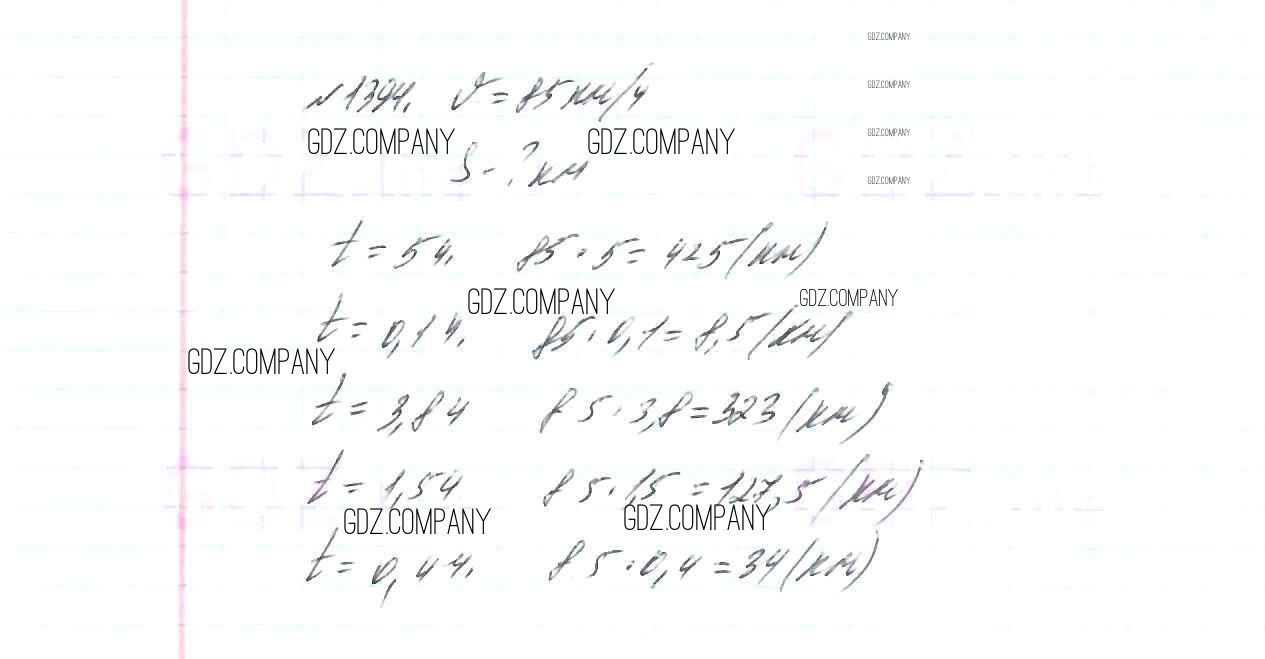 GDZ.COMPANY
GDZ.COMPANY
№1394. v = 85 км/ч
GDZ.COMPANY GDZ.COMPANY
GDZ.COMPANY
S - ? км
GDZ.COMPANY
t = 5 ч. 85 · 5 = 425 (км)
GDZ.COMPANY GDZ.COMPANY
t = 0,1 ч. 85 · 0,1 = 8,5 (км)
GDZ.COMPANY
t = 3,8 ч 85 · 3,8 = 323 (км)
t = 1,5 ч 85 · 1,5 = 127,5 (км)
GDZ.COMPANY GDZ.COMPANY
t = 0,4 ч. 85 · 0,4 = 34 (км)